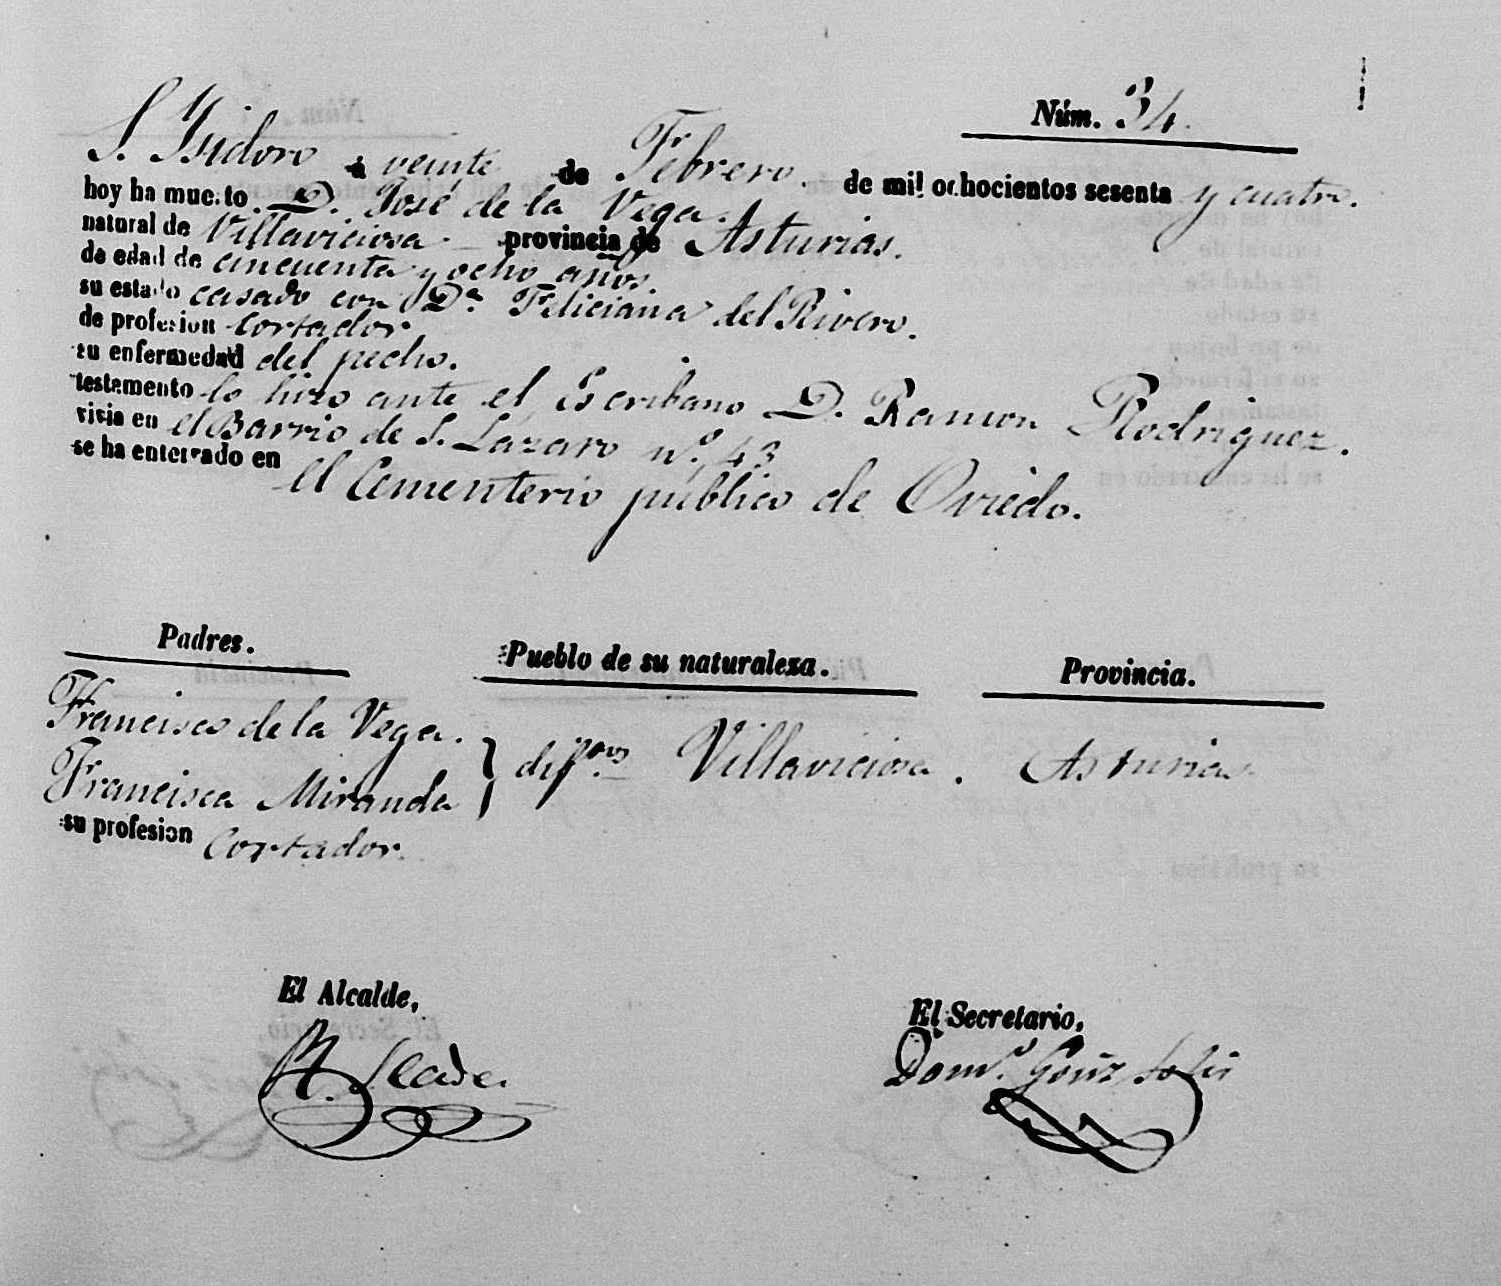 Núm. 34.
S. Isidoro á veinte de Febrero. de mil ochocientos sesenta y cuatro.
hoy ha muerto D. José de la Vega.
natural de Villaviciosa. provincia de Asturias.
de edad de cincuenta y ocho años.
su estado casado con D.ª Feliciana del Rivero.
de profesion Cortador
su enfermedad del pecho.
testamento lo hizo ante el Escribano D. Ramon Rodriguez.
vivia en el Barrio de S. Lázaro n.º 43
se ha enterrado en el Cementerio público de Oviedo.
Padres. Pueblo de su naturaleza. Provincia.
Francisco de la Vega.
Francisca Miranda } dif.tos Villaviciosa. Asturias.
su profesion Cortador.
El Alcalde, El Secretario,
Dom.º Gonz Solis